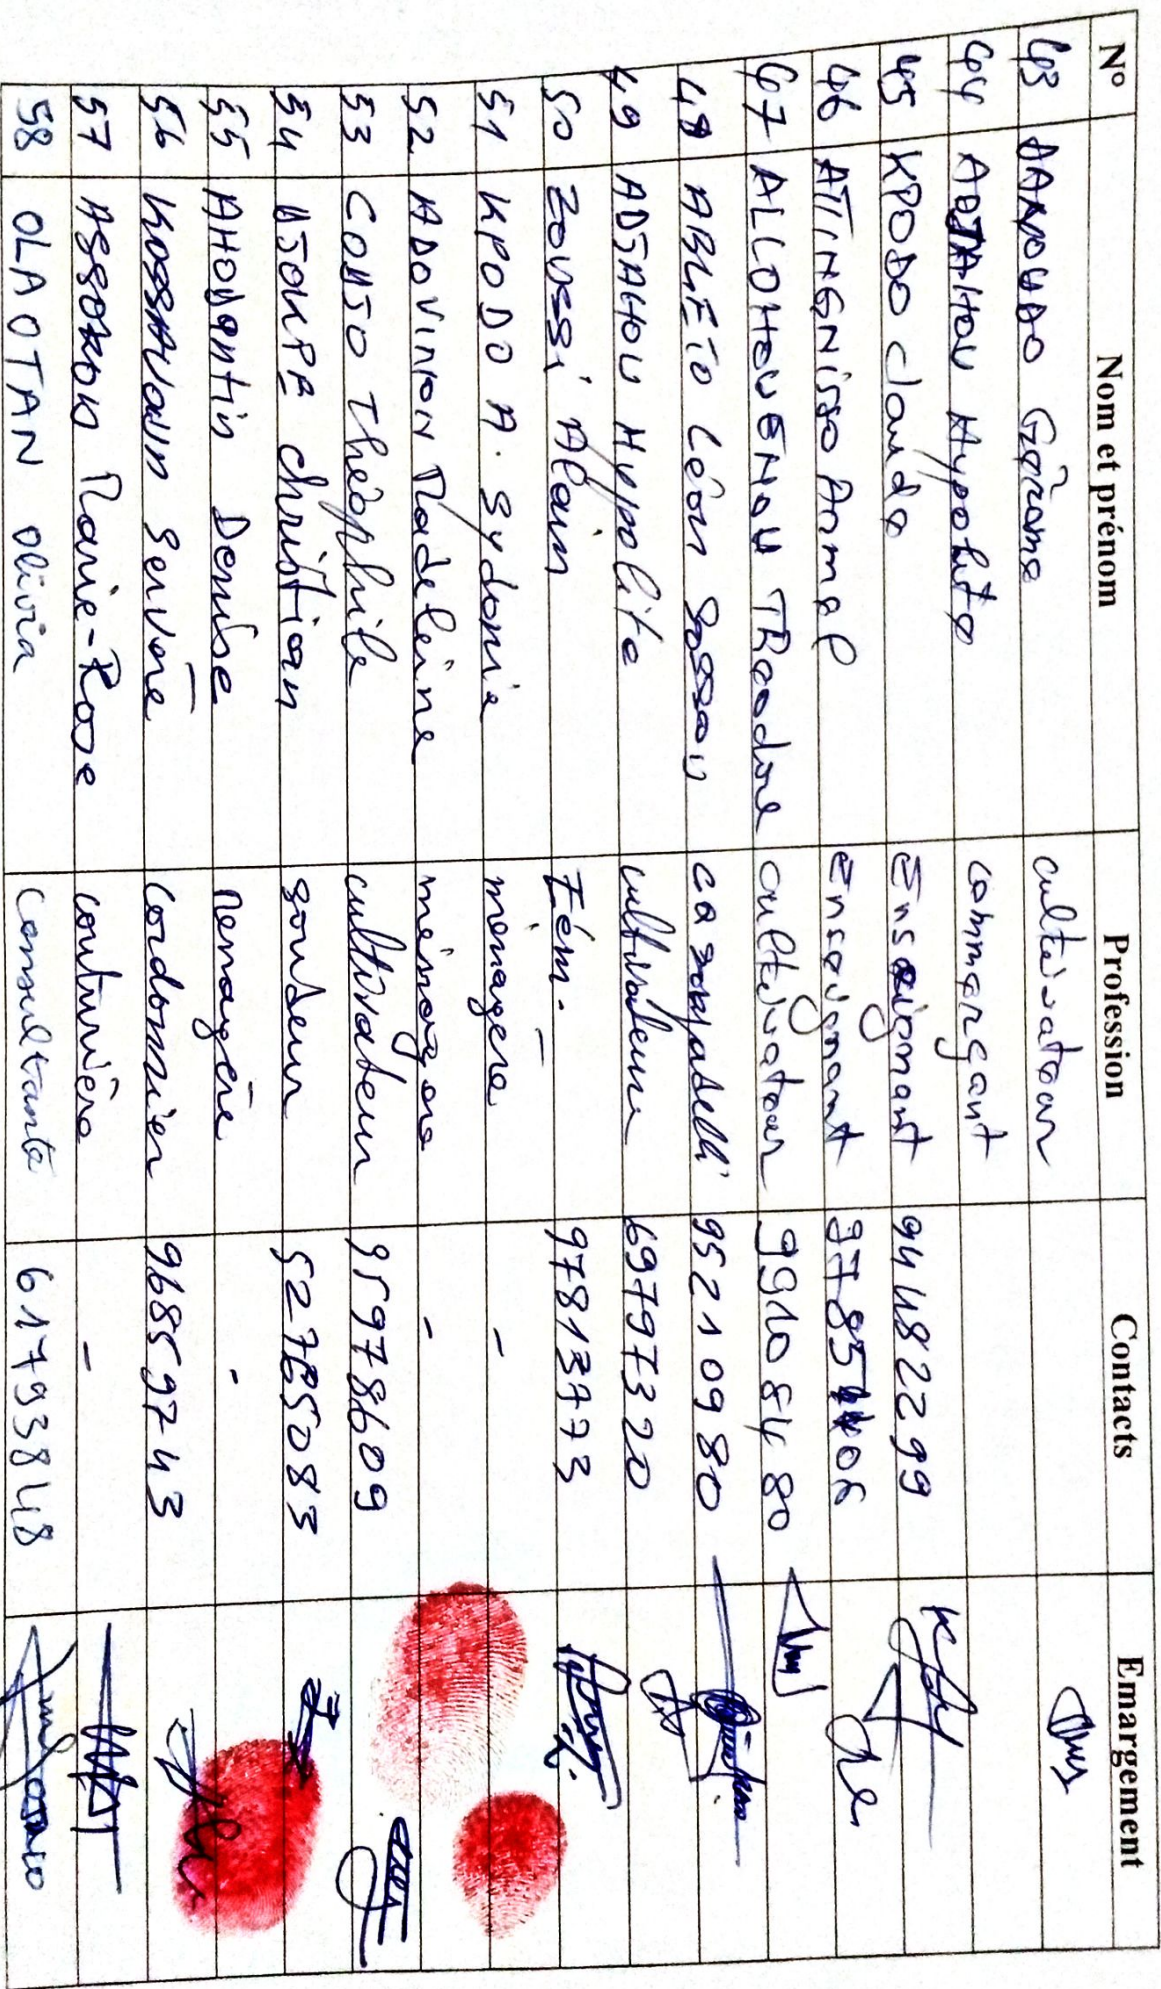 N° Nom et prénom Profession Contacts Emargement
43 Gérome cultivateur
44 ADJAHOU Hypolite commerçant
45 KPODO claude Enseignant 94482299
46 ATINGNisso Armel Enseignant
47 ALLOHOUENOU Théodore cultivateur 99108480
48 ABLETO Léon Sossou 95210980
49 ADJAHOU Hypolite cultivateur 69797320
50 Zoussi Alain Zém. 97813773
51 KPODO A. Sydonie menagère -
52 ADOVINION Madeleine ménagère -
53 CODJO Théophile cultivateur 95978609
54 christian soudeur 52765083
55 AHODantin Denise menagère -
56 KOSSAVOUIN Servane cordonnier 96859743
57 ASSOGBA Marie-Rose couturière -
58 OLAOTAN Olivia Consultante 61793848